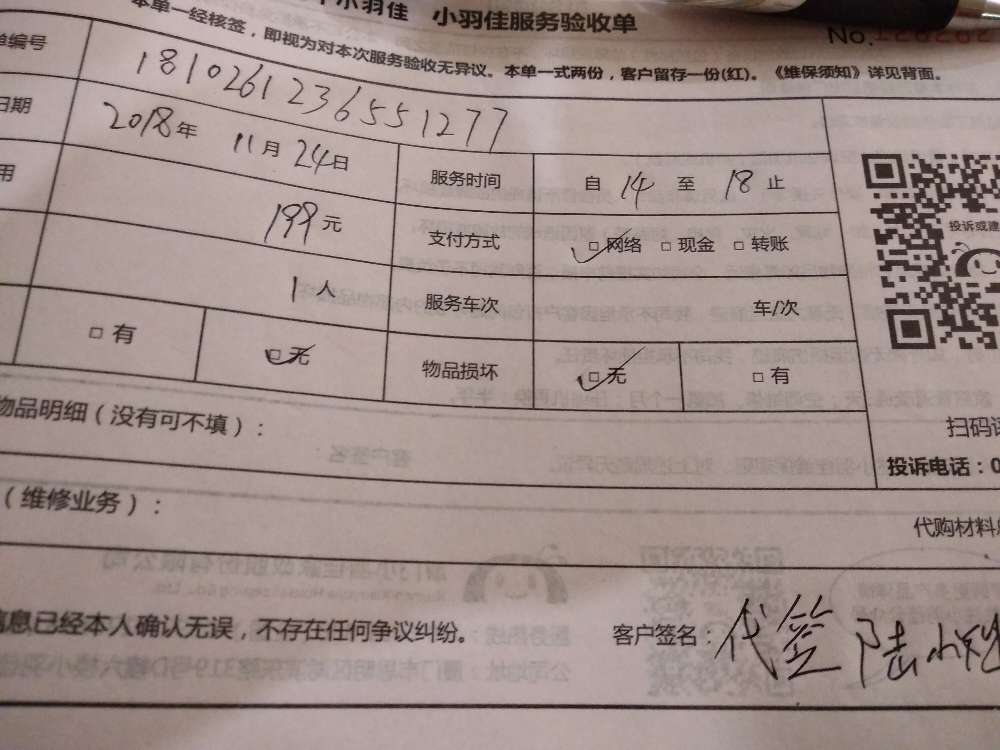 小羽佳 小羽佳服务验收单
No.
本单一经核签，即视为对本次服务验收无异议。本单一式两份，客户留存一份(红)。《维保须知》详见背面。
编号 1810261236551277
日期 2018年 11月 24日 服务时间 自 14 至 18 止
用 199元 支付方式 □网络 □现金 □转账
1人 服务车次 车/次
□有 □无 物品损坏 □无 □有
投诉或建
物品明细（没有可不填）：
扫码
投诉电话：0
（维修业务）：
代购材料
信息已经本人确认无误，不存在任何争议纠纷。 客户签名：代签 陆小